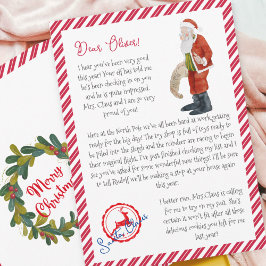 Dear Oliver!
I hear you've been very good
this year! Your elf has told me
he's been checking in on you
and he is quite impressed.
Mrs. Claus and I are so very
proud of you!
Here at the North Pole we've all been hard at work getting
ready for the big day! The toy shop is full of toys ready to
be filled into the sleigh and the reindeer are nearly to begin
their magical flight. I've just finished checking my list and I
see you've asked for some wonderful new things! I'll be sure
to tell Rudolf we'll be making a stop at your house again
this year.
I better run. Mrs. Claus is calling
for me to try on my suit. She's
certain it won't fit after all those
delicious cookies you left for me
last year!
Santa Claus
Merry
Christmas